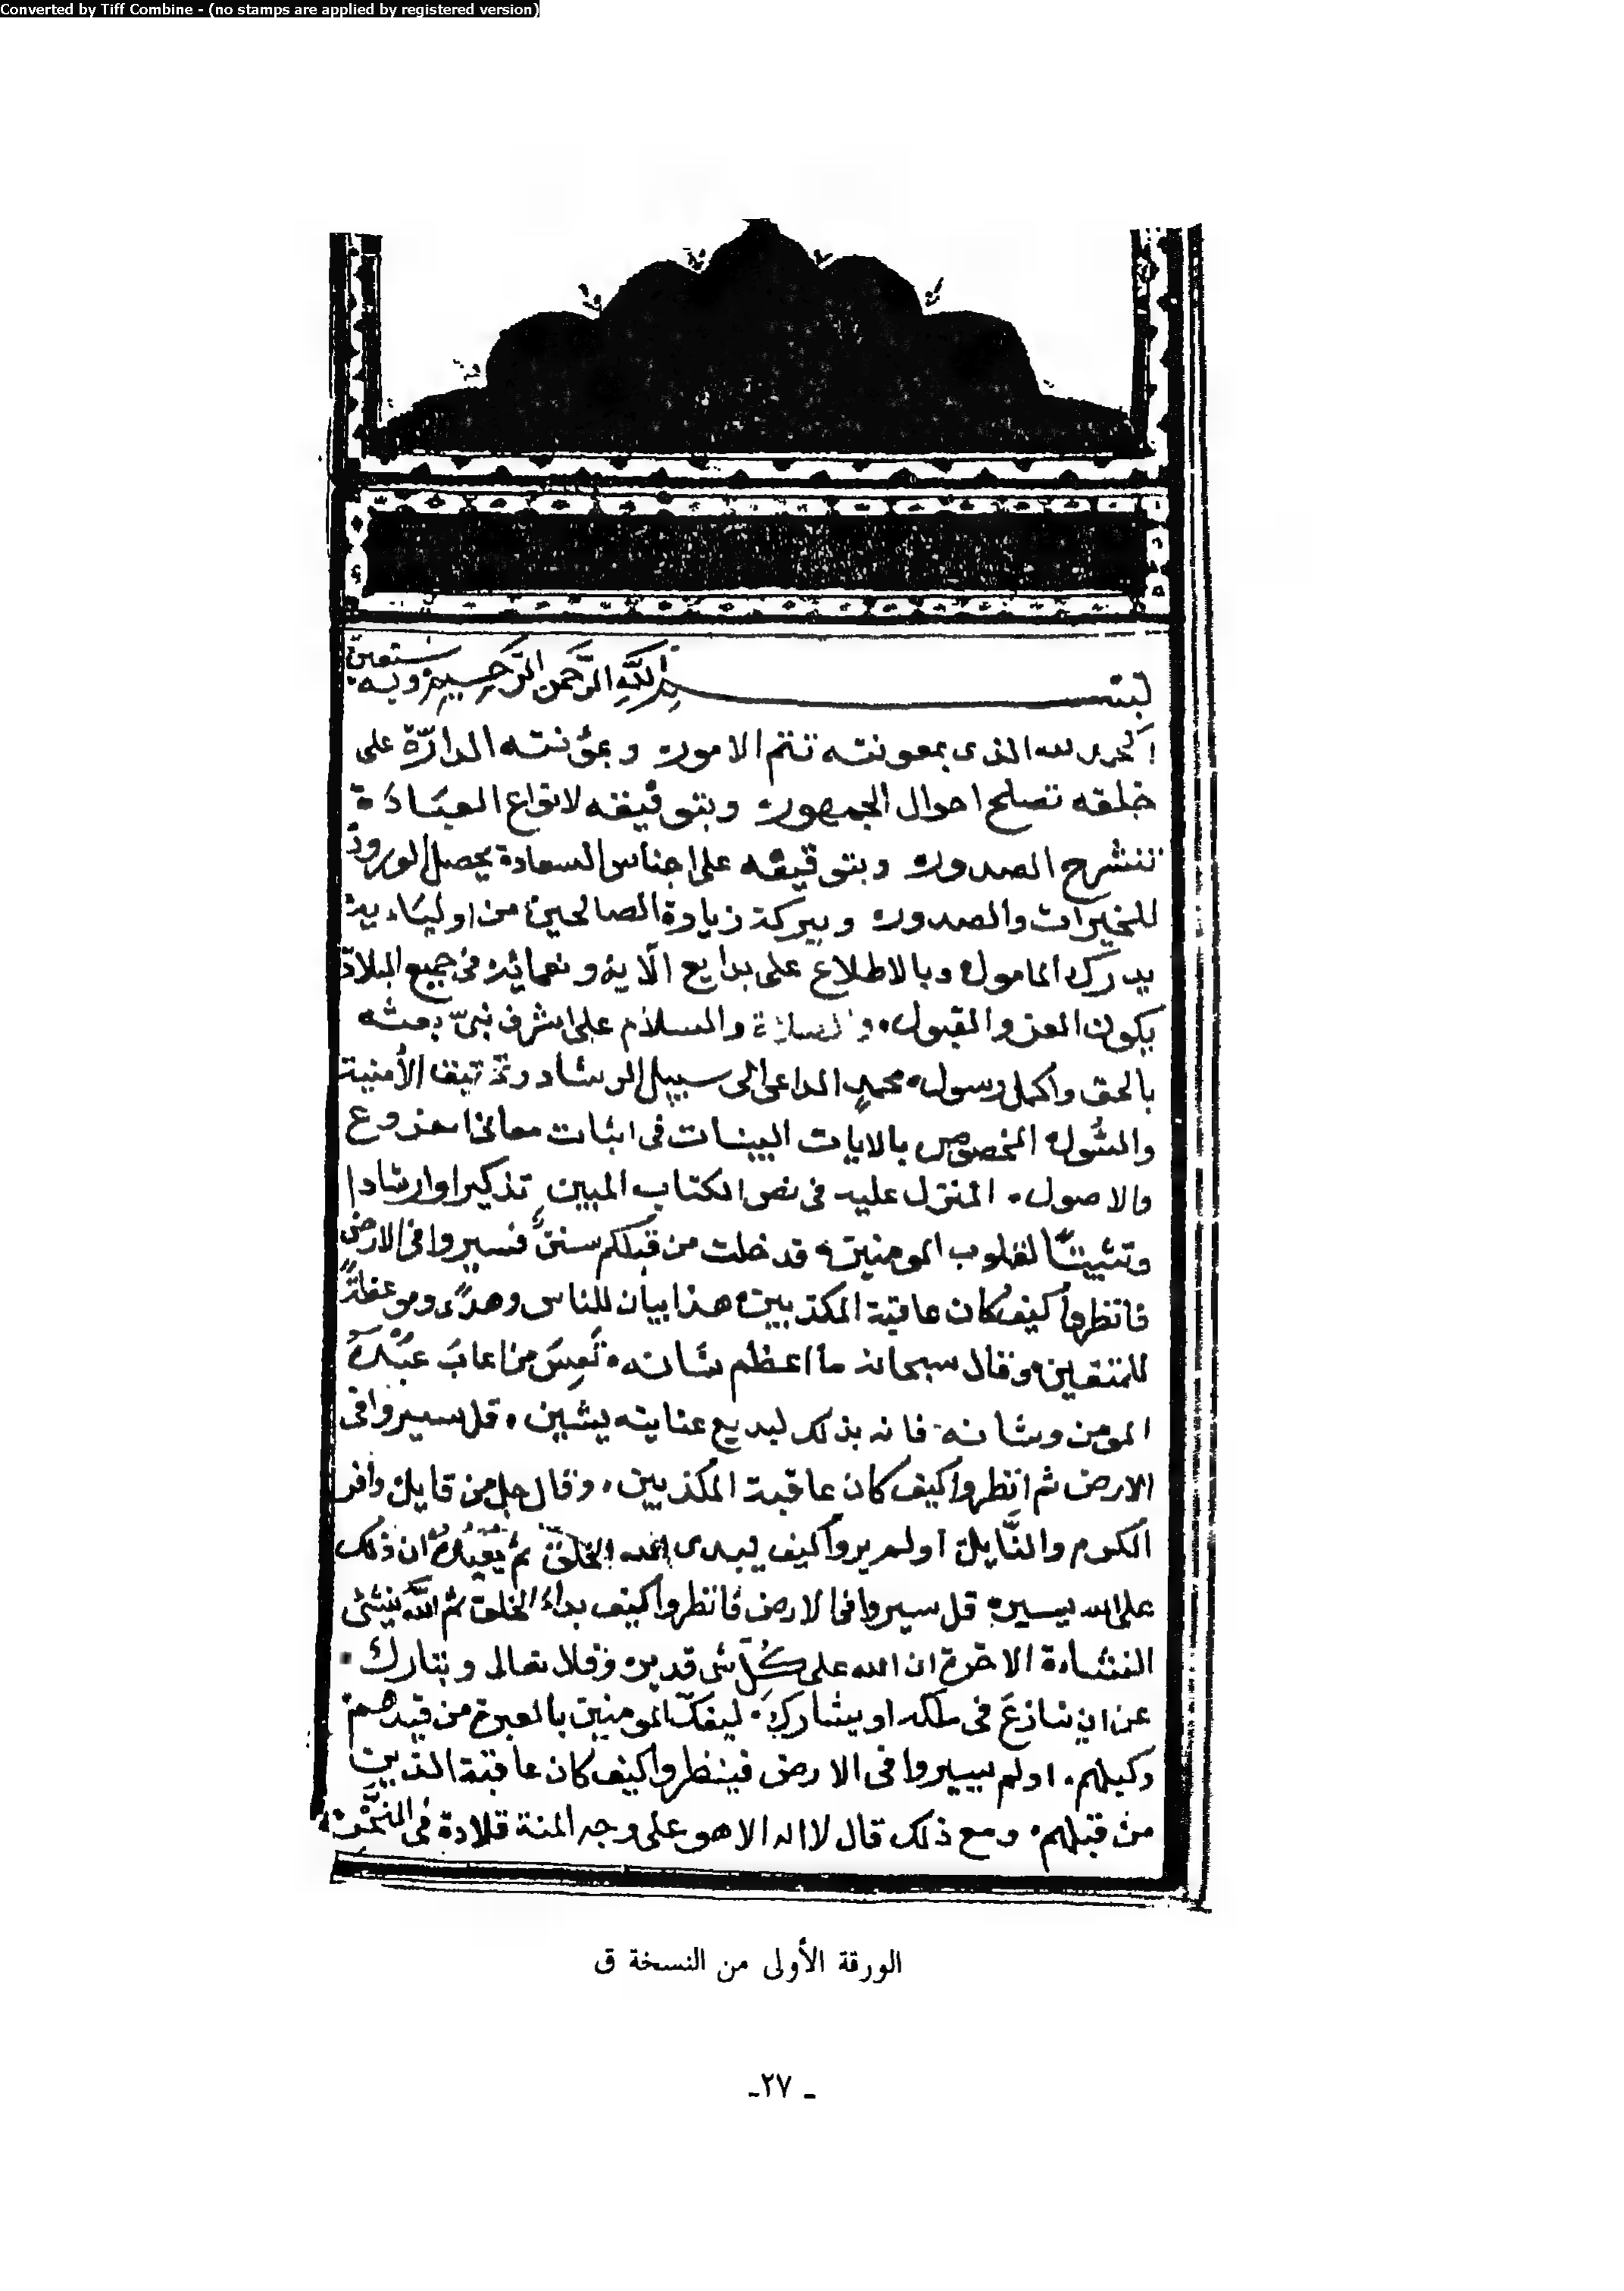 Converted by Tiff Combine - (no stamps are applied by registered version)
بسم الله الرحمن الرحيم وبه نستعين
الحمد لله الذى بمعونته تتم الامور وبمؤنته الدارّة على
خلقه تصلح احوال الجمهور وبتوفيقه لانواع العبادة
تنشرح الصدور وبتوقيفه على اجناس السعادة يحصل الورود
للخيرات والصدور وببركة زيارة الصالحين من اوليايه
يدرك المامول وبالاطلاع على بدايع الآيه ونعمائه فى جميع البلاد
يكون العز والقبول والصلاة والسلام على اشرف نبىّ بعثه
بالحق واكمل رسول محمد الداعى الى سبيل الرشاد الأمنية
والسُّول المخصوص بالايات البينات فى اثبات معانى الفروع
والاصول المنزل عليه فى نص الكتاب المبين تذكيرا وارشادا
وتثبيتًا لقلوب المومنين قد خلت من قبلكم سننٌ فسيروا فى الارض
فانظروا كيف كان عاقبة المكذبين هذا بيان للناس وهدًى وموعظةٌ
للمتقين وقال سبحانه ما اعظم شانه تَعِسَ من اعابَ عبْدَهُ
المومن وشانه فانه بذلك لبديع عنايته يشين قل سيروا فى
الارض ثم انظروا كيف كان عاقبة المكذبين وقال جل من قايل وافر
الكرم والنَّايل اولم يروا كيف يبدى الله الخلق ثمّ يُعِيدُهُ ان ذلك
على الله يسير قل سيروا فى الارض فانظروا كيف بداء الخلق ثم اللّه ينشئ
النشاءة الاخرة ان الله على كُلِّ شى قدير وقال تعالى وتبارك
عن ان ينازعَ فى ملكه او يشارك ليفكّ المومنين بالعبرة من قيدهم
وكبلهم اولم يسيروا فى الارض فينظروا كيف كان عاقبة الذين
من قبلهم ومع ذلك قال لا اله الا هو على وجه المنة قلادة فى
الورقة الأولى من النسخة ق
ـ ٢٧ـ